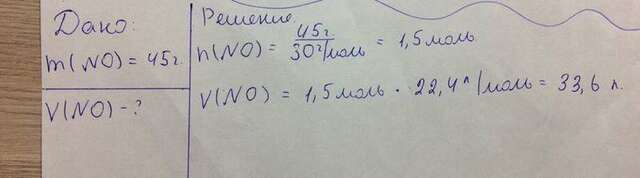 Дано:
m(NO) = 45г.
V(NO) - ?
Решение
n(NO) = 45г / 30г/моль = 1,5 моль
V(NO) = 1,5 моль · 22,4 л/моль = 33,6 л.